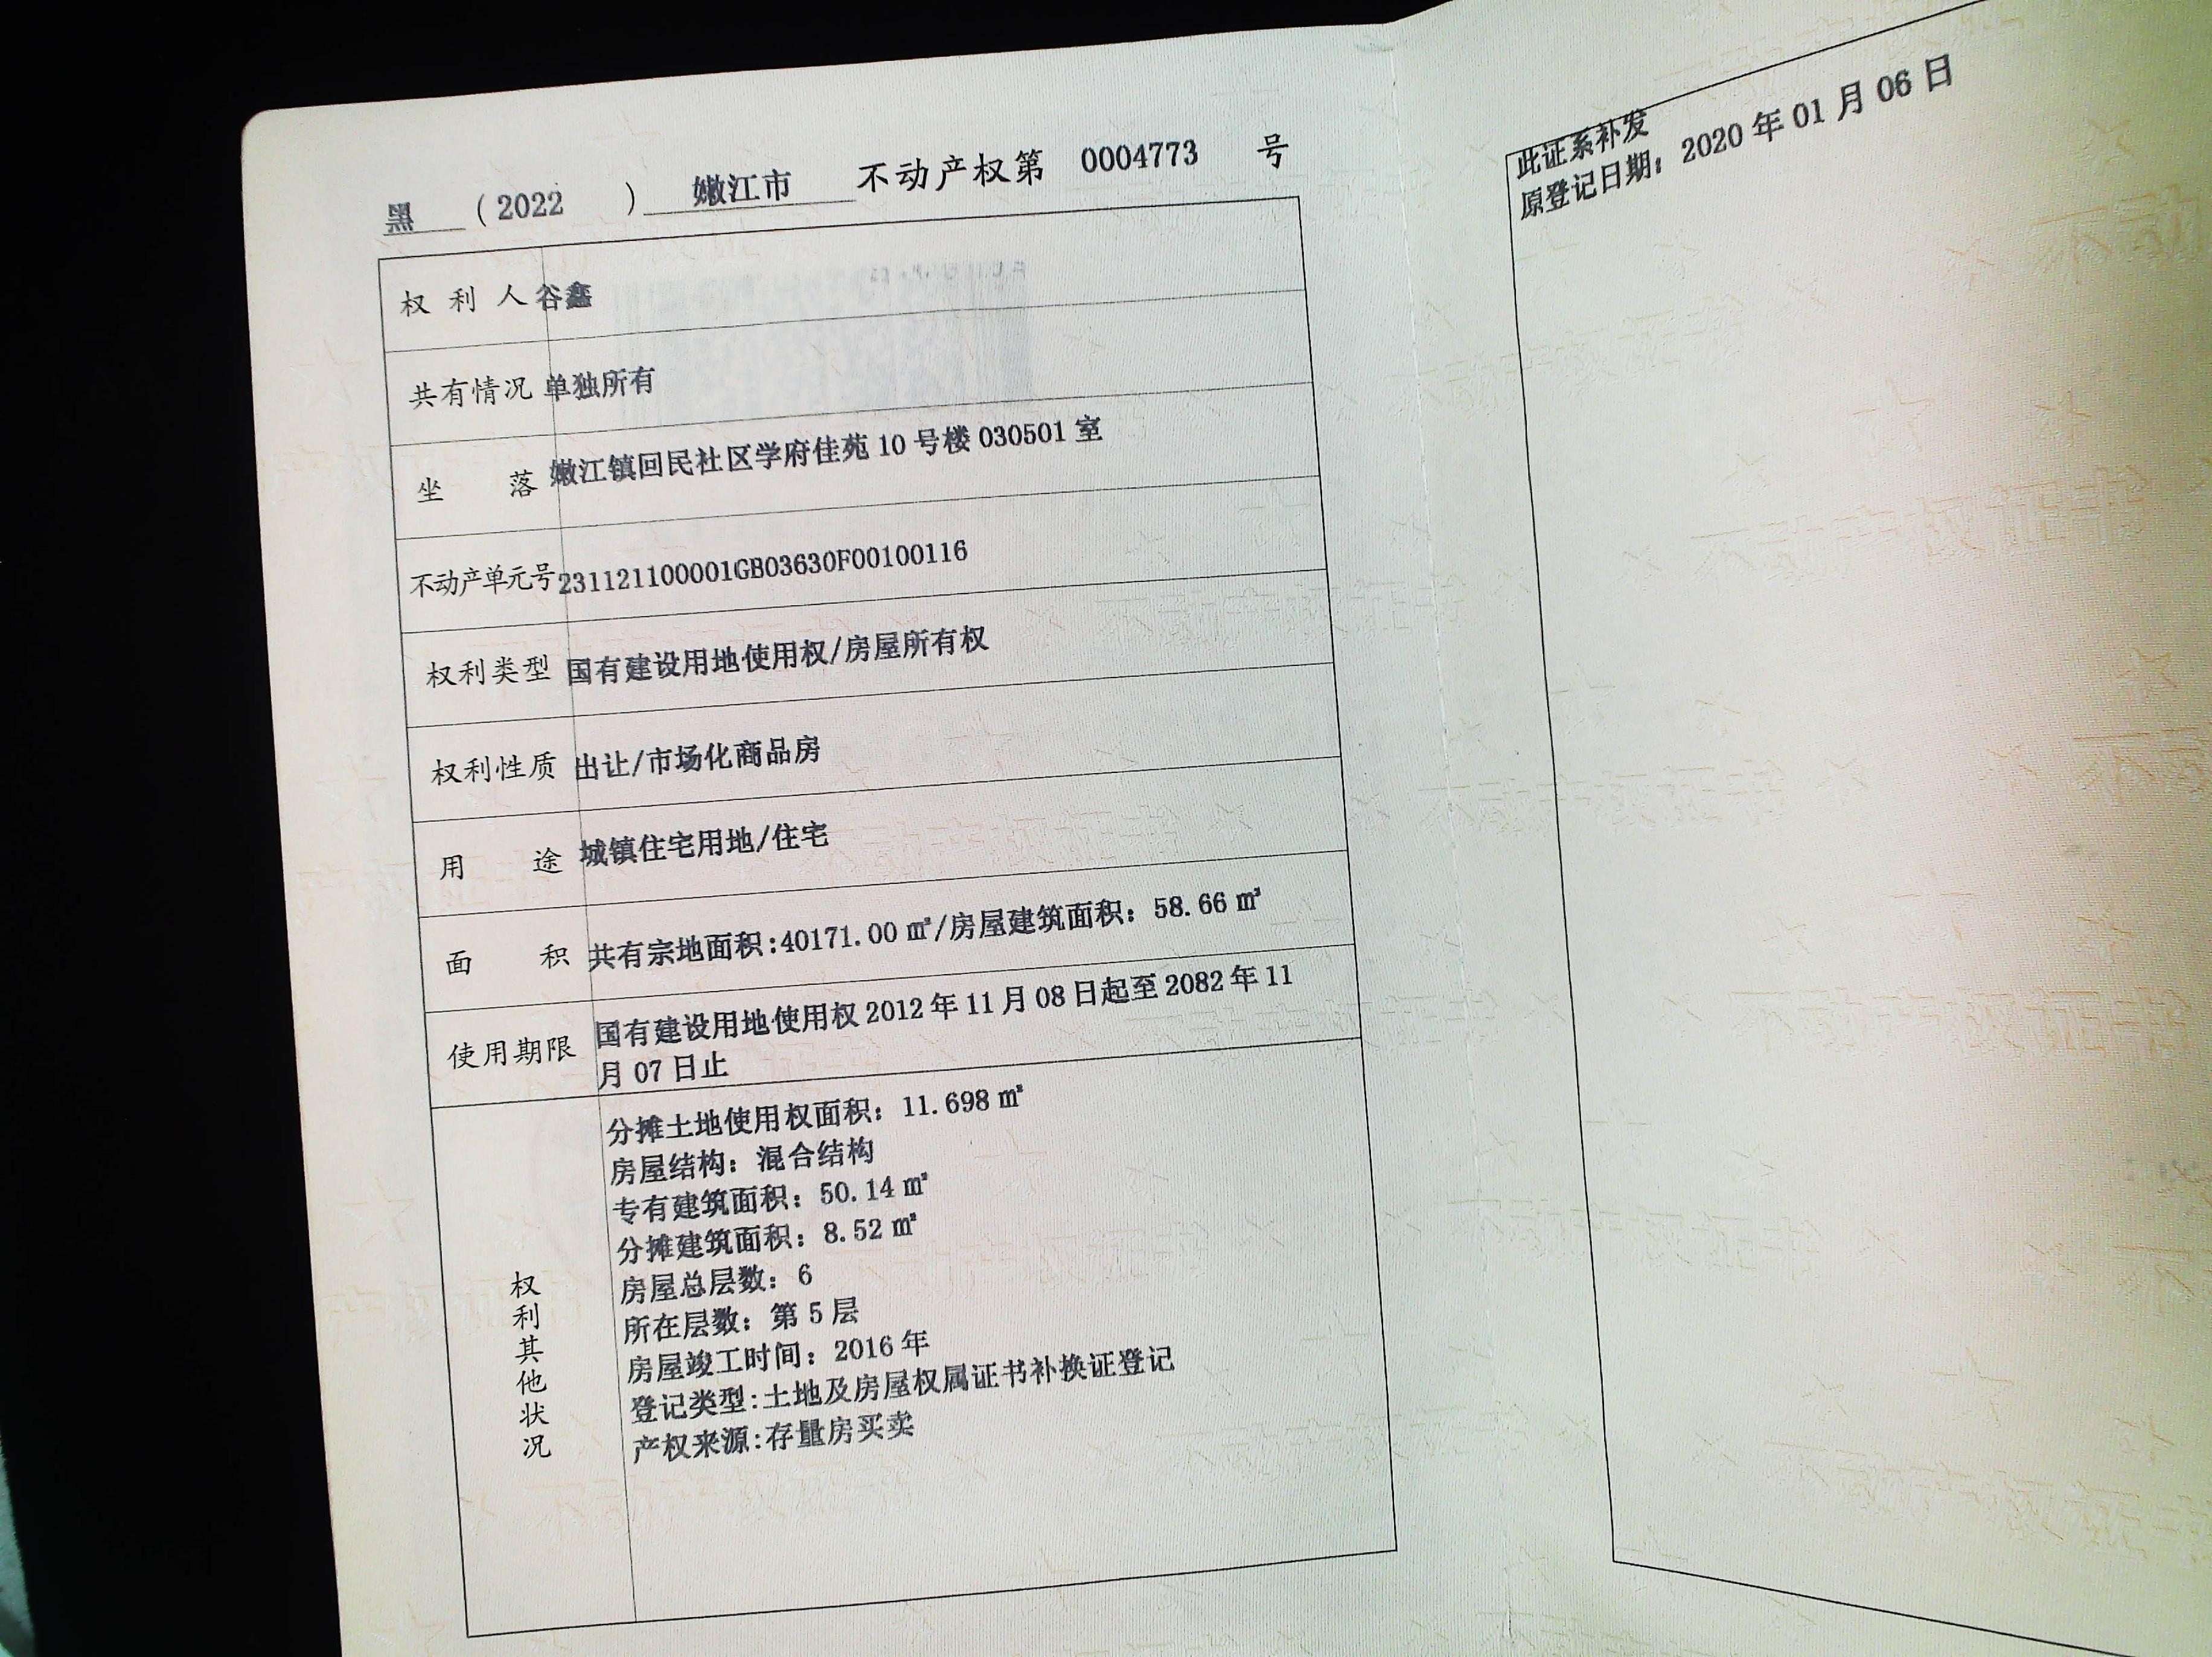 黑 （2022 ） 嫩江市 不动产权第 0004773 号
权利人 谷鑫
共有情况 单独所有
坐落 嫩江镇回民社区学府佳苑10号楼030501室
不动产单元号 231121100001GB03630F00100116
权利类型 国有建设用地使用权/房屋所有权
权利性质 出让/市场化商品房
用途 城镇住宅用地/住宅
面积 共有宗地面积:40171.00㎡/房屋建筑面积：58.66㎡
使用期限 国有建设用地使用权2012年11月08日起至2082年11
月07日止
权利其他状况
分摊土地使用权面积：11.698㎡
房屋结构：混合结构
专有建筑面积：50.14㎡
分摊建筑面积：8.52㎡
房屋总层数：6
所在层数：第5层
房屋竣工时间：2016年
登记类型:土地及房屋权属证书补换证登记
产权来源:存量房买卖
此证系补发
原登记日期：2020年01月06日